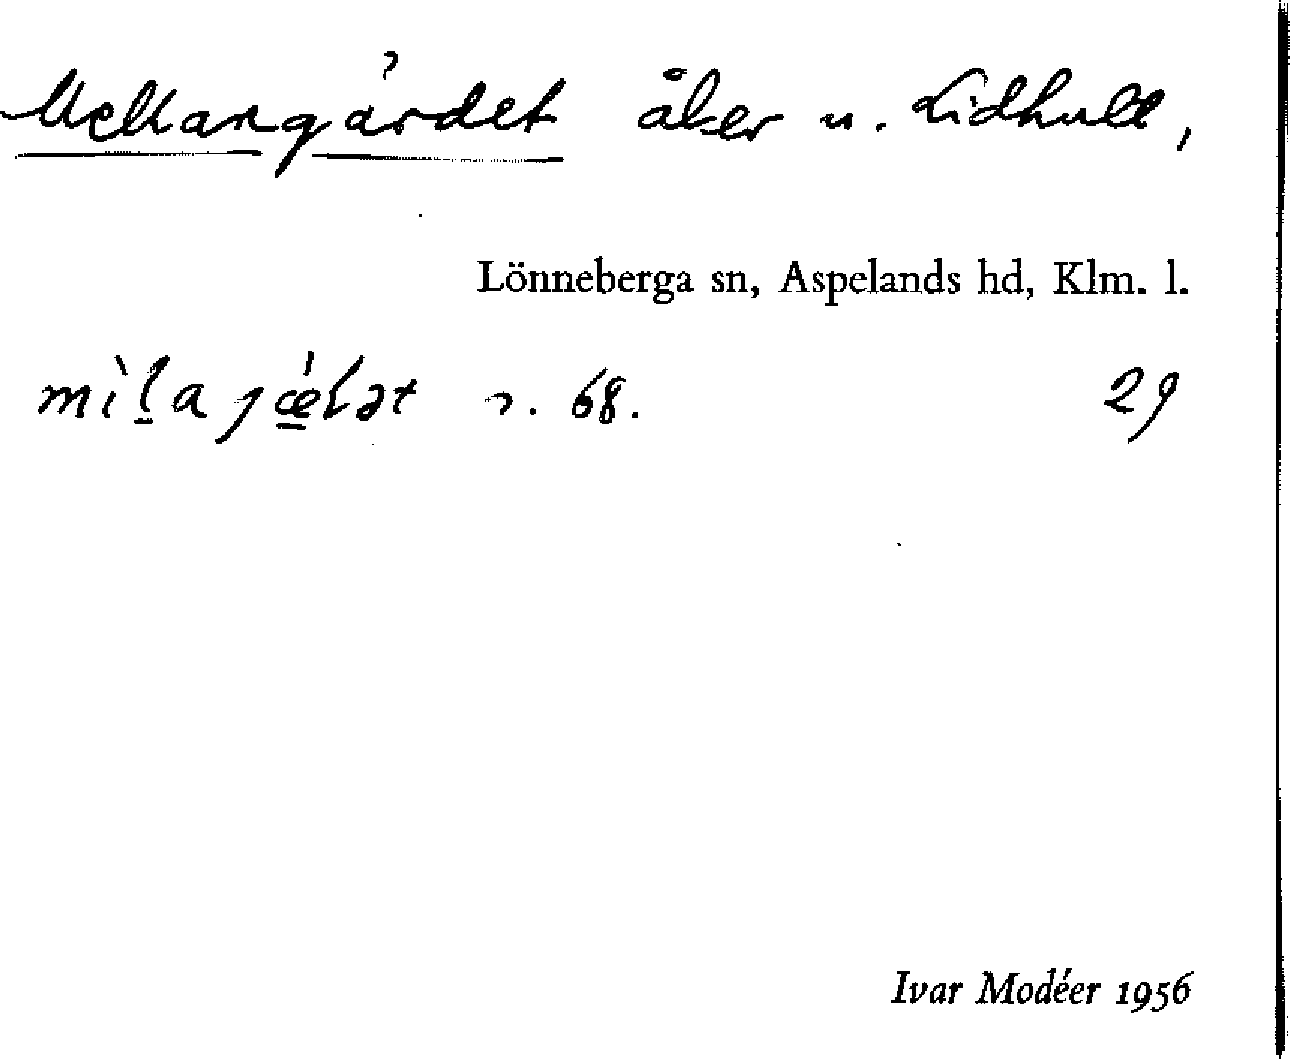 Mellangärdet åker u. Lidhult,
Lönneberga sn, Aspelands hd, Klm. l.
mìl̲a jǽ̲lət n. 68. 29
Ivar Modéer 1956